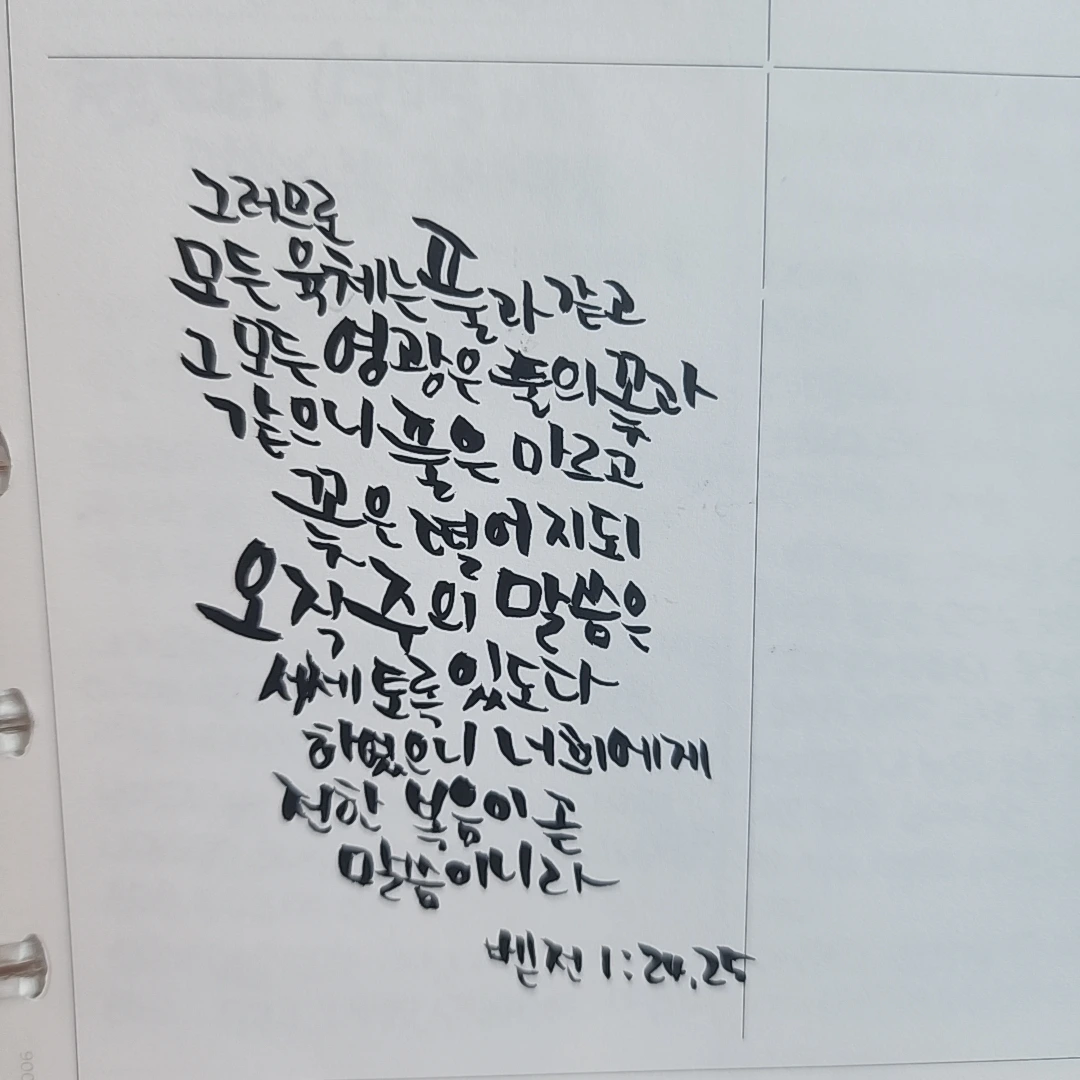 그러므로
모든 육체는 풀과 같고
그 모든 영광은 풀의 꽃과
같으니 풀은 마르고
꽃은 떨어지되
오직 주의 말씀은
세세토록 있도다
하였으니 너희에게
전한 복음이 곧
말씀이니라
벧전 1:24,25
006